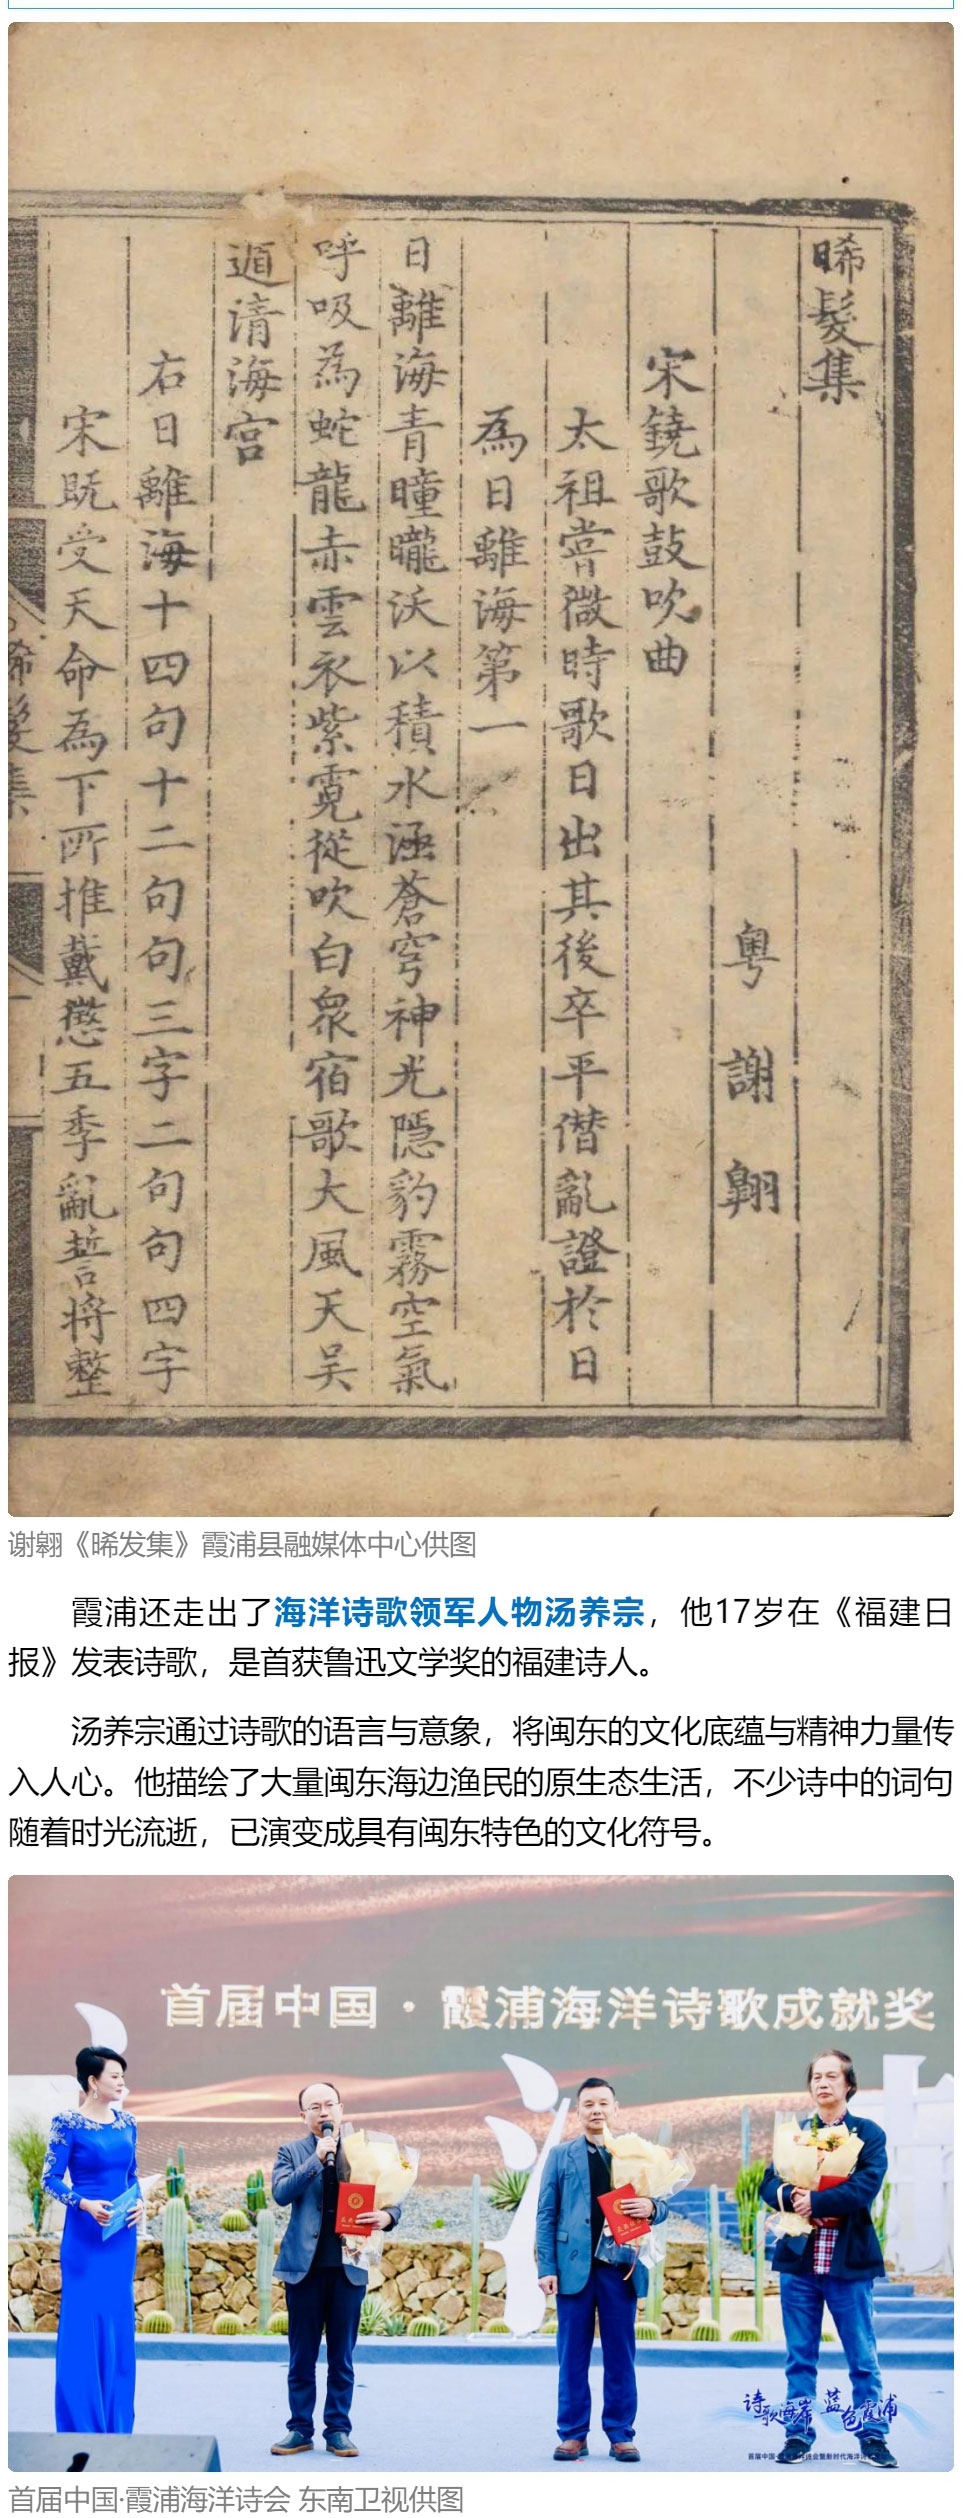 晞髮集
粤謝翺
宋鐃歌鼓吹曲
太祖嘗微時歌日出其後卒平僭亂證於日
為日離海第一
日離海青曈曨沃以積水涵蒼穹神光隱豹霧空氣
呼吸為蛇龍赤雲衣紫霓從吹白衆宿歌大風天吴
遁清海宫
右日離海十四句十二句句三字二句句四字
宋既受天命為下所推戴懲五季亂誓將整
谢翱《晞发集》霞浦县融媒体中心供图
霞浦还走出了海洋诗歌领军人物汤养宗，他17岁在《福建日
报》发表诗歌，是首获鲁迅文学奖的福建诗人。
汤养宗通过诗歌的语言与意象，将闽东的文化底蕴与精神力量传
入人心。他描绘了大量闽东海边渔民的原生态生活，不少诗中的词句
随着时光流逝，已演变成具有闽东特色的文化符号。
首届中国·霞浦海洋诗歌成就奖
诗歌海岸 蓝色霞浦
首届中国·霞浦海洋诗会 东南卫视供图